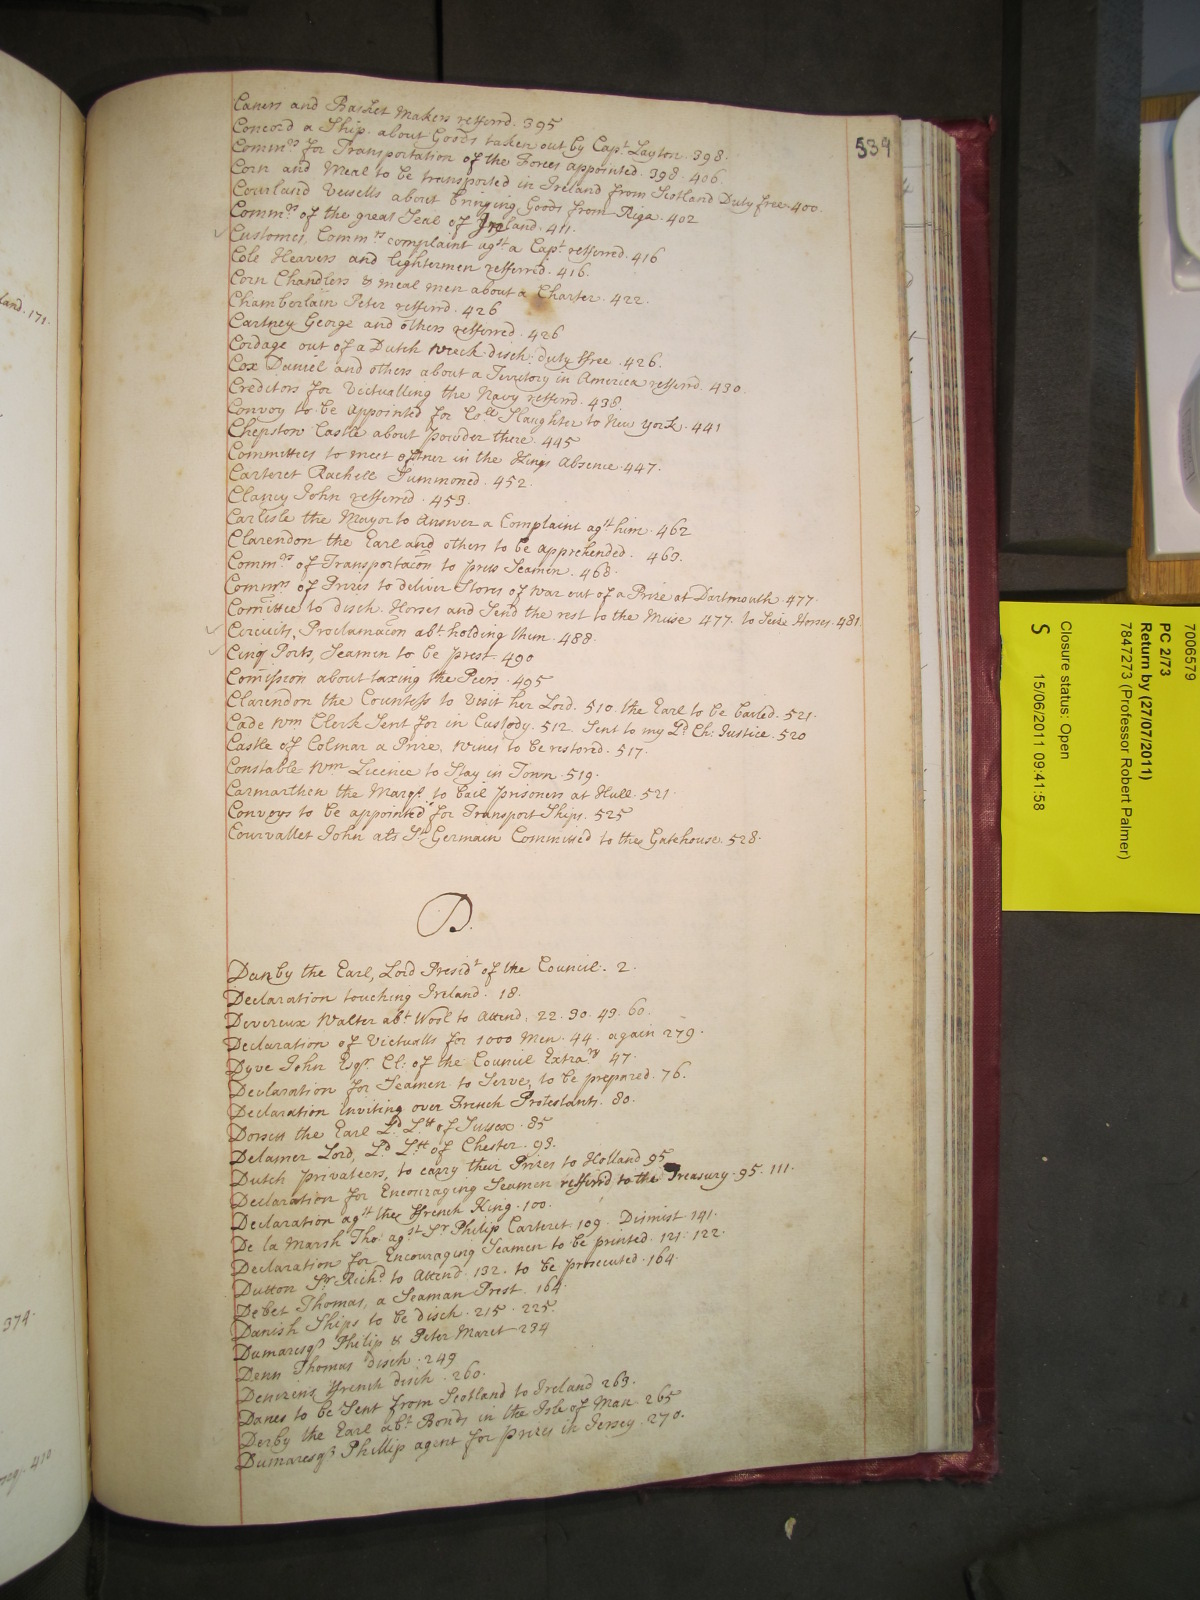 539
Caners and Basket Makers refferrd. 395
Concord a Ship about Goods taken out by Capt Layton. 398.
Commrs for Transportation of the Forces appointed. 398. 406.
Corn and Meal to be transported in Ireland from Scotland Duty free. 400.
Courland Vessells about bringing Goods from Riga. 402
Commrs of the great Seal of Ireland. 411.
Customes, Commrs complaint agst a Capt refferred. 416
Cole Heavers and lightermen refferred. 416.
Corn Chandlers & meal men about a Charter. 422.
Chamberlain Peter refferrd. 426
Cartney George and others refferred. 426
Cordage out of a Dutch wreck disch: duty ffree. 426.
Cox Daniel and others about a Territory in America refferrd. 430.
Creditors for Victualling the Navy refferrd. 438.
Convoy to be appointed for Coll Slaughter to New York. 441
Chepstow Castle about powder there. 445
Committees to meet oftner in the Kings Absence. 447.
Carteret Rachell Summoned. 452.
Clancy John refferred. 453.
Carlisle the Mayor to Answer a Complaint agst him. 462
Clarendon the Earl and others to be apprehended. 463.
Commrs of Transportacon to press Seamen. 468.
Commrs of Prizes to deliver Stores of War out of a Prize at Dartmouth. 477.
Comittee to disch. Horses and Send the rest to the Muse 477. to Seize Horses. 481.
Circuits, Proclamacon abt holding them. 488.
Cinq Ports, Seamen to be prest. 490
Comission about taxing the Peers. 495
Clarendon the Countess to Visit her Lord. 510. the Earl to be bailed. 521.
Cade Wm Clerk Sent for in Custody. 512. Sent to my Ld Ch: Justice. 520
Castle of Colmar a Prize, wines to be restored. 517.
Constable Wm Licence to Stay in Town. 519.
Carmarthen the Marqs. to bail prisoners at Hull. 521.
Convoys to be appointed for Transport Ships. 525
Courvallet John als St Germain Committed to the Gatehouse. 528.
D.
Danby the Earl, Lord Presidt of the Council. 2.
Declaration touching Ireland. 18.
Devereux Walter abt Wool to Attend. 22. 30. 49. 60.
Declaration of Victualls for 1000 Men. 44. again 279.
Dyve John Esqr. Cl: of the Council Extrary 47.
Declaration for Seamen to Serve, to be prepared. 76.
Declaration inviting over French Protestants. 80.
Dorsett the Earl Ld Ltt of Sussex. 85
Delamer Lord, Ld Ltt of Chester. 93.
Dutch privateers, to carry their Prizes to Holland 95
Declaration for Encouraging Seamen refferrd to the Treasury. 95. 111.
Declaration agst the ffrench King. 100.
De la Marsh Tho: agst Sr Philip Carteret 109. Dismist 141.
Declaration for Encouraging Seamen to be printed. 121. 122.
Dutton Sr Richd to Attend. 132. to be prosecuted. 164.
Debet Thomas, a Seaman Prest. 164.
Danish Ships to be disch. 215. 225.
Dumaresqs Philip & Peter Maret 234
Denn Thomas disch: 249
Denizens ffrench disch. 260.
Danes to be Sent from Scotland to Ireland 263.
Derby the Earl abt Bonds in the Isle of Man. 265
Dumaresqs Phillip agent for prizes in Jersey. 270.
land. 171.
374.
410
7006579
PC 2/73
Return by (27/07/2011)
7847273 (Professor Robert Palmer)
Closure status: Open
S 15/06/2011 09:41:58